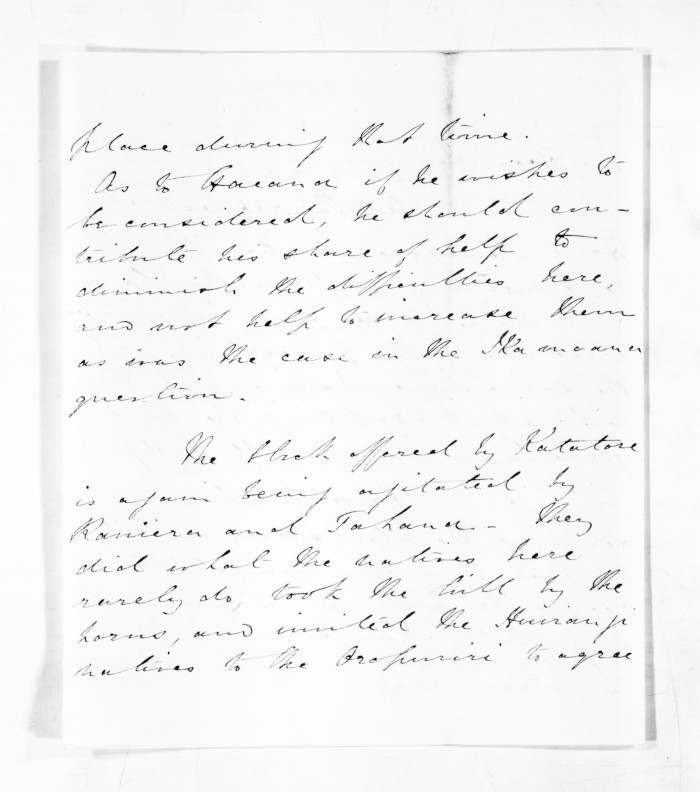 place during that time.
As to Haeana if he wishes to
be considered, he should con-
tribute his share of help to
diminish the difficulties here,
and not help to increase them
as was the case in the Ikamoana
question.
The block offered by Katatore
is again being agitated by
Raniera and Tahana - They
did what the natives here
rarely do, took the bull by the
horns, and invited the Huirangi
natives to the Oropuriri to agree